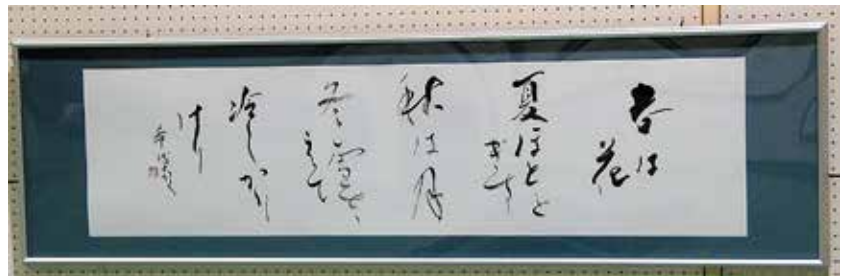 春は
花
夏ほとと
ぎす
秋は月
冬雪さ
えて
冷しかり
けり